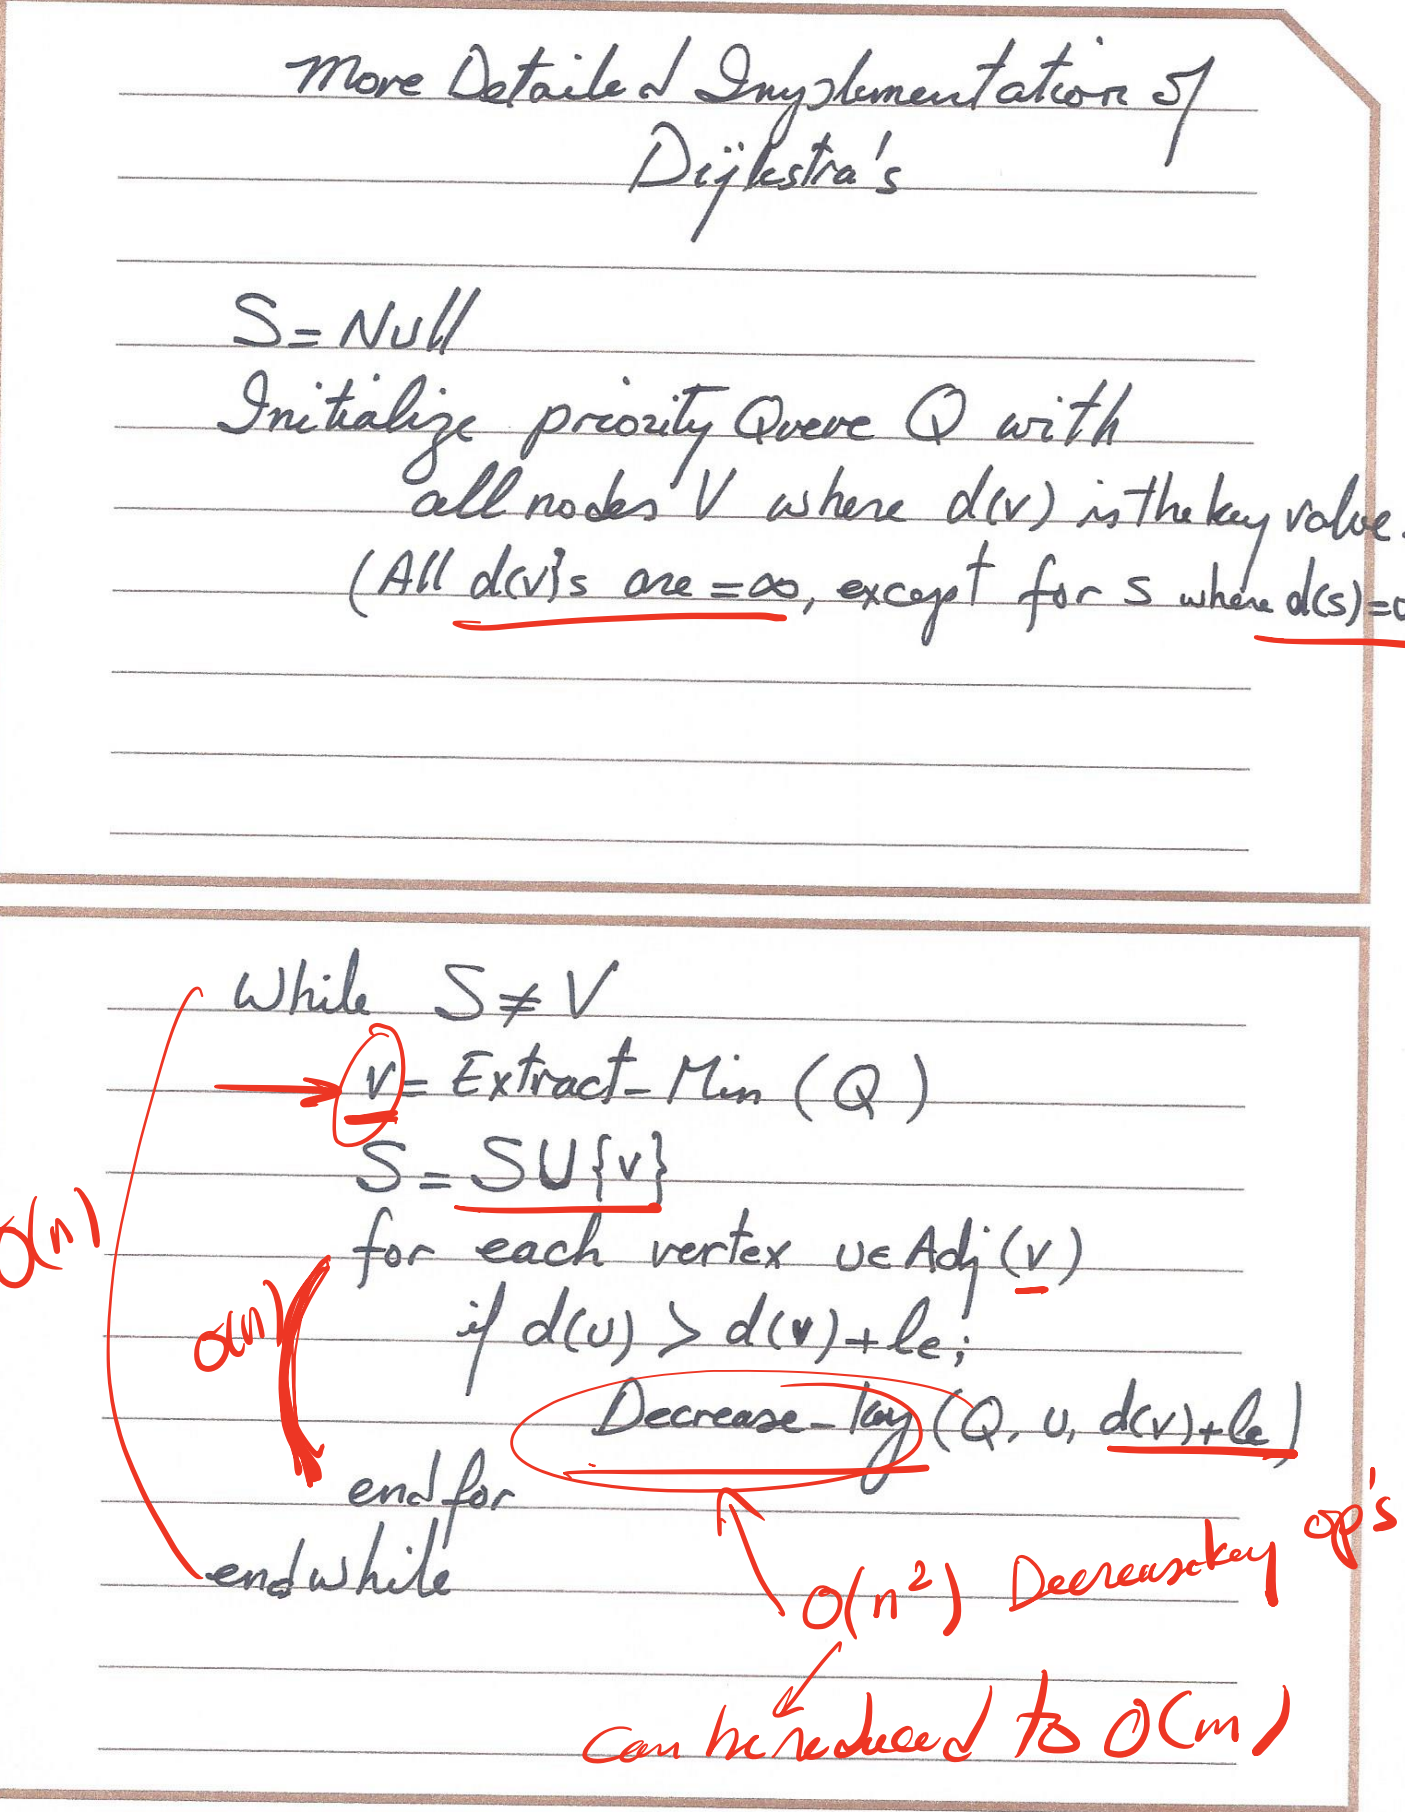 More Detailed Implementation of
Dijkstra's
S = Null
Initialize priority Queue Q with
all nodes V where d(v) is the key value.
(All d(v)'s are = ∞, except for s where d(s)=0
While S ≠ V
v = Extract-Min (Q)
S = S U {v}
for each vertex u ∈ Adj (v)
if d(u) > d(v) + le;
Decrease-key (Q, u, d(v)+le)
end for
endwhile
O(n)
O(n)
O(n²) Decrease key op's
can be reduced to O(m)